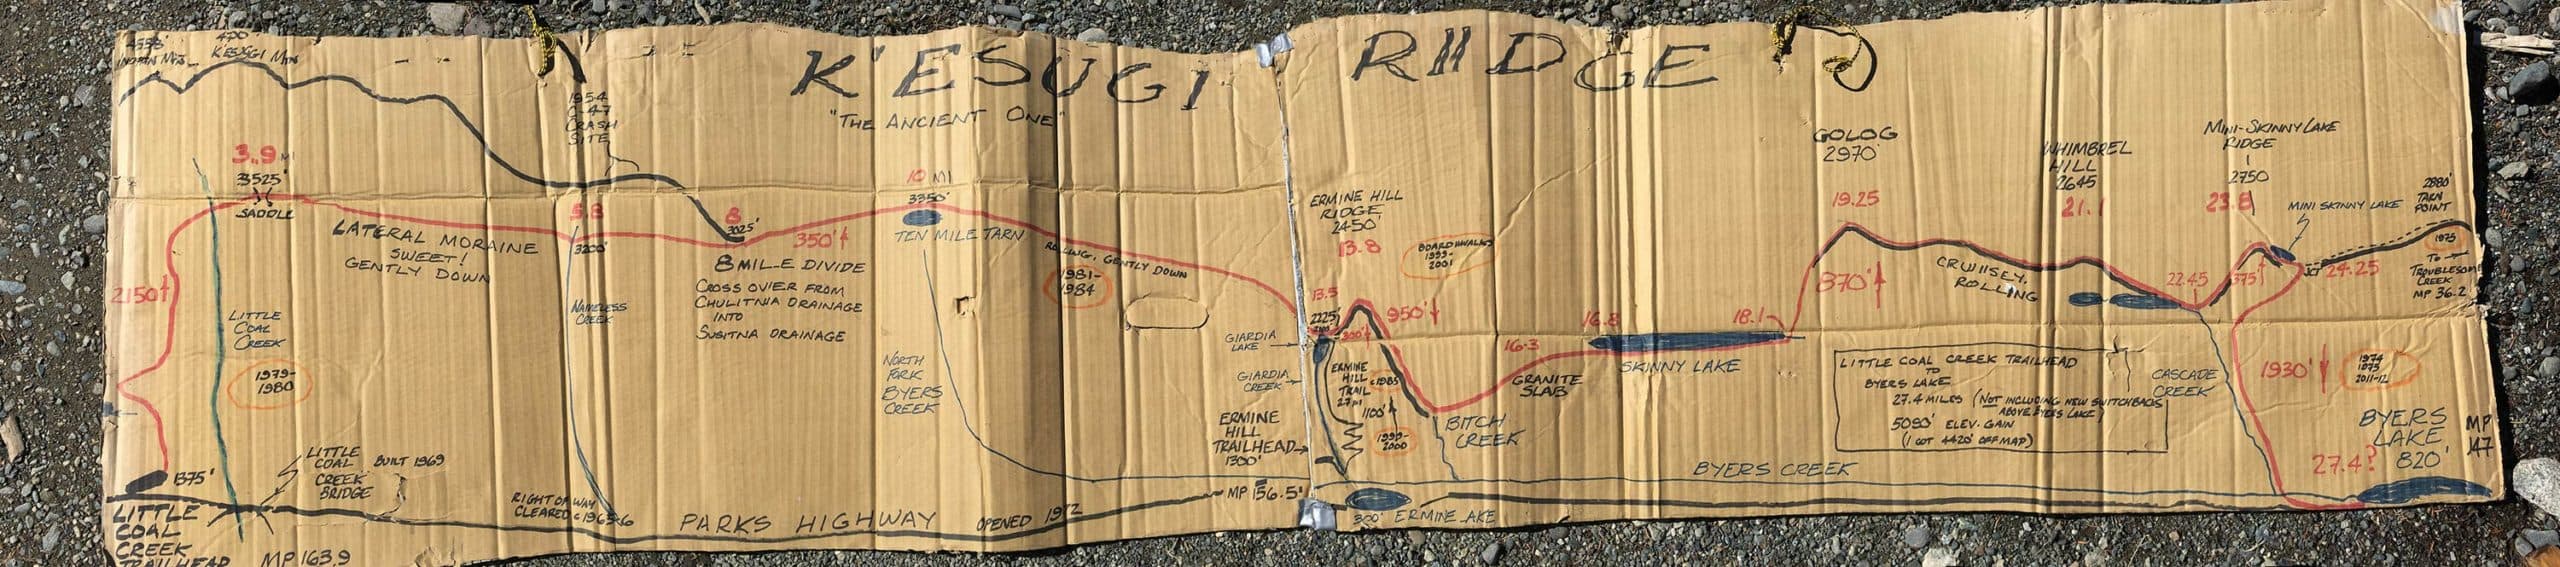 K'ESUGI RIIDGE
"THE ANCIENT ONE"
4558'
INDIAN MTN
K'ESUGI MTN
1954
C-47
CRASH
SITE
3.9 MI
3525'
SADDLE
2150'
LATERAL MORAINE
SWEET!
GENTLY DOWN
LITTLE
COAL
CREEK
1979-
1980
1375'
LITTLE
COAL
CREEK
BRIDGE
BUILT 1969
LITTLE
COAL
CREEK
TRAILHEAD
MP 163.9
5.8
3200'
NAMELESS
CREEK
RIGHT OF WAY
CLEARED
PARKS HIGHWAY
OPENED 1972
MP 156.5
8
3025'
8 MILE DIVIDE
CROSS OVER FROM
CHULITNA DRAINAGE
INTO
SUSITNA DRAINAGE
350'
10 MI
3350'
TEN MILE TARN
NORTH
FORK
BYERS
CREEK
ROLLING, GENTLY DOWN
1981-
1984
ERMINE HILL
RIDGE
2450'
13.8
BOARDWALKS
1999-
2001
13.5
2225'
300'
950'
GIARDIA
LAKE
GIARDIA
CREEK
ERMINE
HILL
TRAILHEAD
1300'
ERMINE
HILL
TRAIL
c1985
1100'
1999-
2000
BITCH
CREEK
300' ERMINE LAKE
16.3
GRANITE
SLAB
16.8
18.1
SKINNY LAKE
BYERS CREEK
GOLOG
2970'
19.25
870'
CRUIISEY,
ROLLING
LITTLE COAL CREEK TRAILHEAD
TO
BYERS LAKE
27.4 MILES (NOT INCLUDING NEW SWITCHBACKS
ABOVE BYERS LAKE)
5090' ELEV. GAIN
(I GOT 4420' OFF MAP)
WHIMBREL
HILL
2645
21.1
22.45
CASCADE
CREEK
MINI-SKINNY LAKE
RIDGE
2750
23.8
375'
MINI SKINNY LAKE
JCT 24.25
2880'
TARN
POINT
1975
TO
TROUBLESOME
CREEK
MP 36.2
1930'
1974
1975
2011-12
BYERS
LAKE
820'
MP
147
27.4?